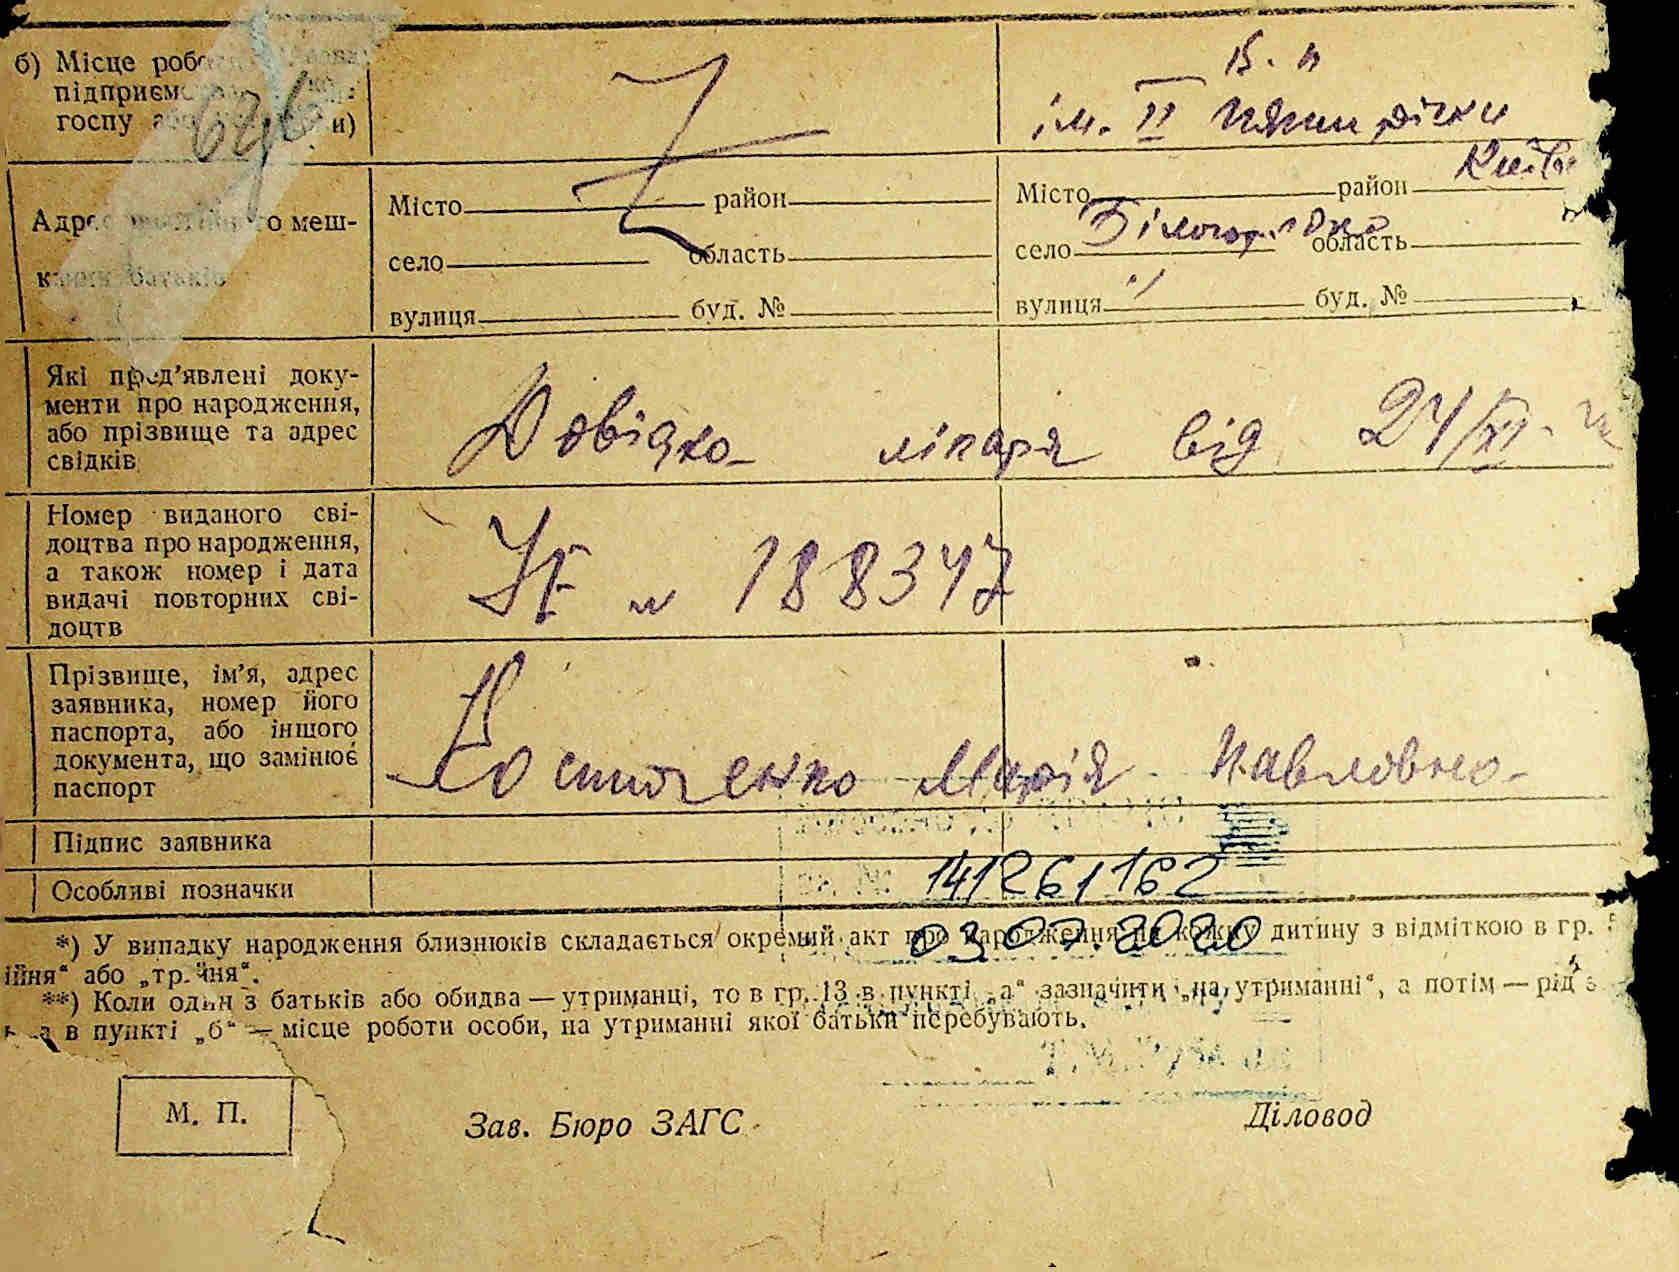 б) Місце
підприєм
госпу
к. п
ім. II п'ятирічки
Адрес меш-
батьків
Місто район
село область
вулиця буд. №
Місто район Київ
село Білогородка область
вулиця буд. №
Які пред'явлені доку-
менти про народження,
або прізвище та адрес
свідків
Довідка лікаря від 24/XI-
Номер виданого сві-
доцтва про народження,
а також номер і дата
видачі повторних сві-
доцтв
№ 188347
Прізвище, ім'я, адрес
заявника, номер його
паспорта, або іншого
документа, що замінює
паспорт
Костюченко Марія Павлівна
Підпис заявника
Особливі позначки
141261162
03.07.2020
*) У випадку народження близнюків складається окремий акт про народження на кожну дитину з відміткою в гр. 5
ійня" або „трійня".
**) Коли один з батьків або обидва — утриманці, то в гр. 13 в пункті „а" зазначити „на утриманні", а потім — рід з
а в пункті „б" — місце роботи особи, на утриманні якої батьки перебувають.
М. П.
Зав. Бюро ЗАГС
Діловод